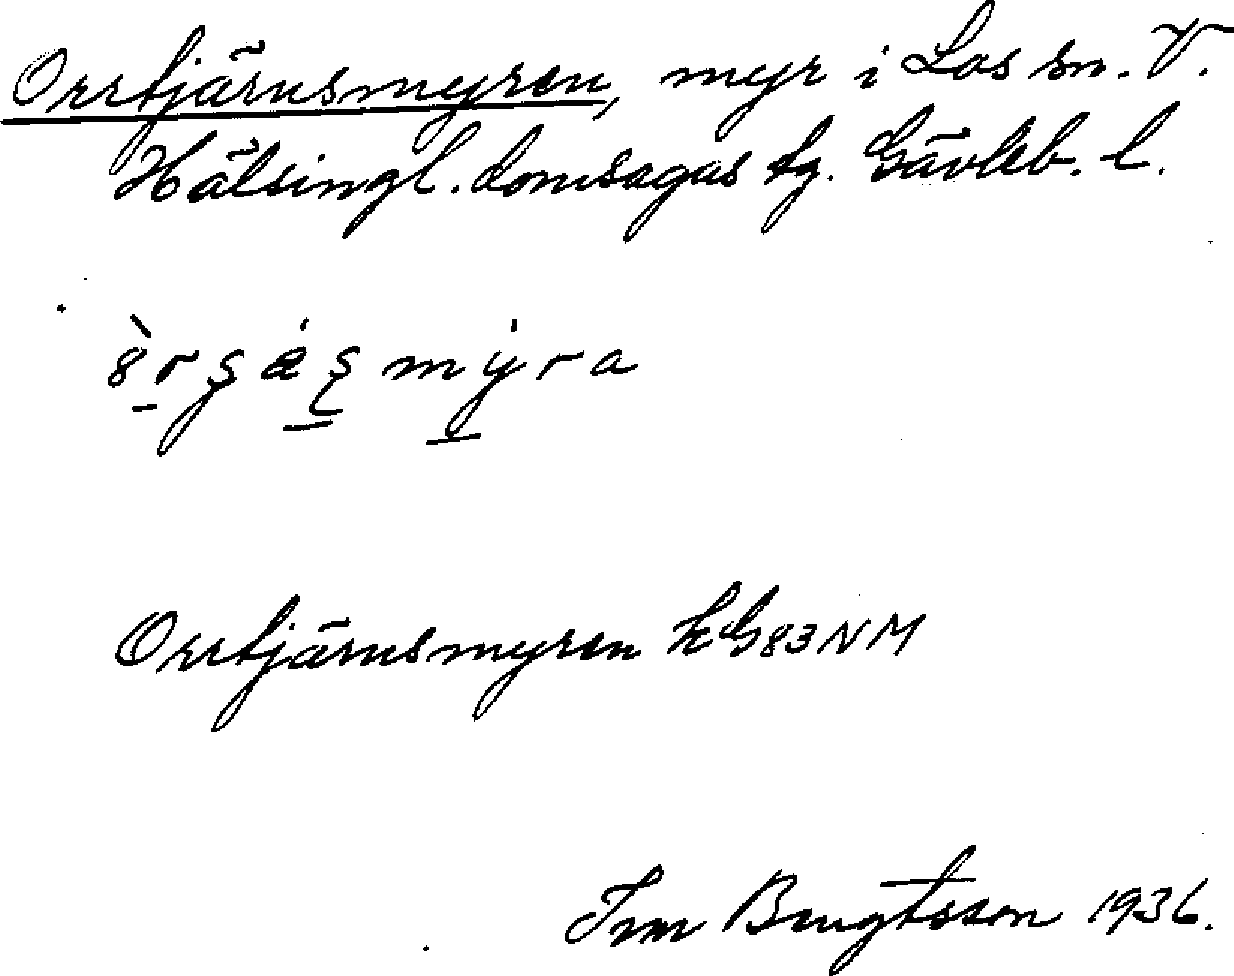 Orrtjärnsmyren, myr i Los sn. V.
Hälsingl. domsagas tg. Gävleb. l.
Orrtjärnsmyren kG83NM
Bengtsson 1936.